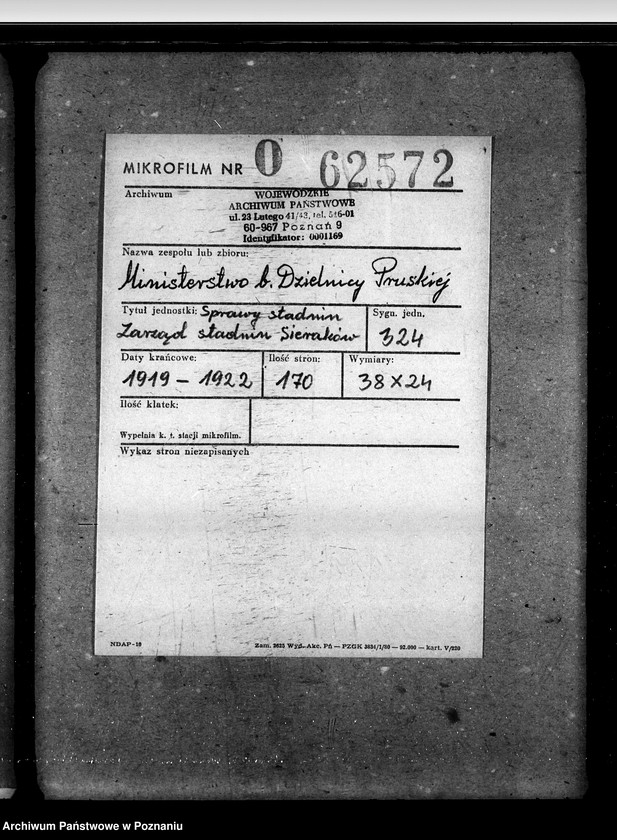 MIKROFILM NR O 62572
Archiwum
WOJEWÓDZKIE
ARCHIWUM PAŃSTWOWE
ul. 23 Lutego 41/43, tel. 546-01
60-967 Poznań 9
Identyfikator: 0001169
Nazwa zespołu lub zbioru:
Ministerstwo b. Dzielnicy Pruskiej
Tytuł jednostki: Sprawy stadnin
Zarząd stadnin Sieraków
Sygn. jedn.
324
Daty krańcowe:
1919 – 1922
Ilość stron:
170
Wymiary:
38 × 24
Ilość klatek:
Wypełnia k. t. stacji mikrofilm.
Wykaz stron niezapisanych
NDAP-19
Zam. 2623 Wyd. Akc. Pń — PZGK 3634/1/80 — 92.000 — kart. V/220
Archiwum Państwowe w Poznaniu